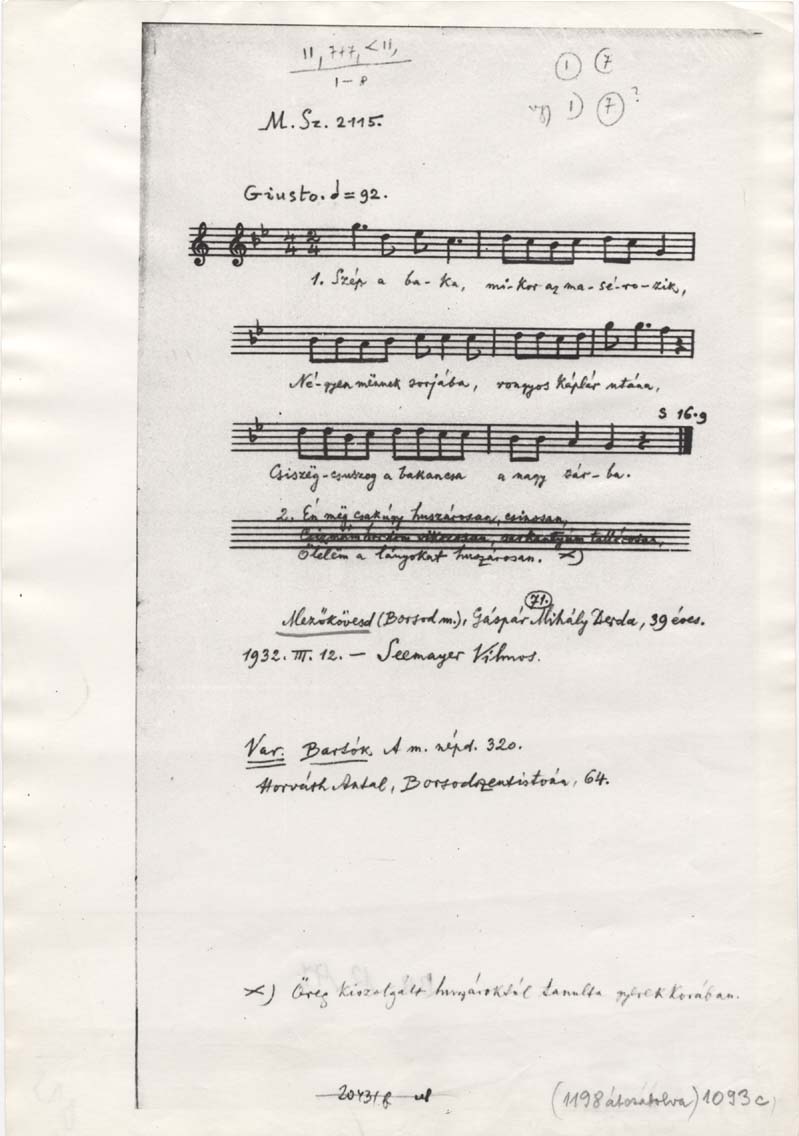 11, 7+7, <11,
1-8
1 7
vagy 1) 7 ?
M. Sz. 2115.
Giusto. ♩=92.
1. Szép a ba-ka, mi-kor az ma-sé-ro-zik,
Né-gyen mënnek sorjába, rongyos káplár utána,
S 16.9
Csiszëg-csuszog a bakancsa a nagy sár-ba.
2. Én mëg csakúgy huszárosan, csinosan,
Csizmám hordom
Ölelëm a lányokat huszárosan. ×)
71.
Mezőkövesd (Borsod m.), Gáspár Mihály Derda, 39 éves.
1932. III. 12. – Seemayer Vilmos.
Var. Bartók A m. népd. 320.
Horváth Antal, Borsodszentistván, 64.
×) Öreg kiszolgált huszároktól tanulta gyerekkorában.
(1198 átszámolva) 1093 c